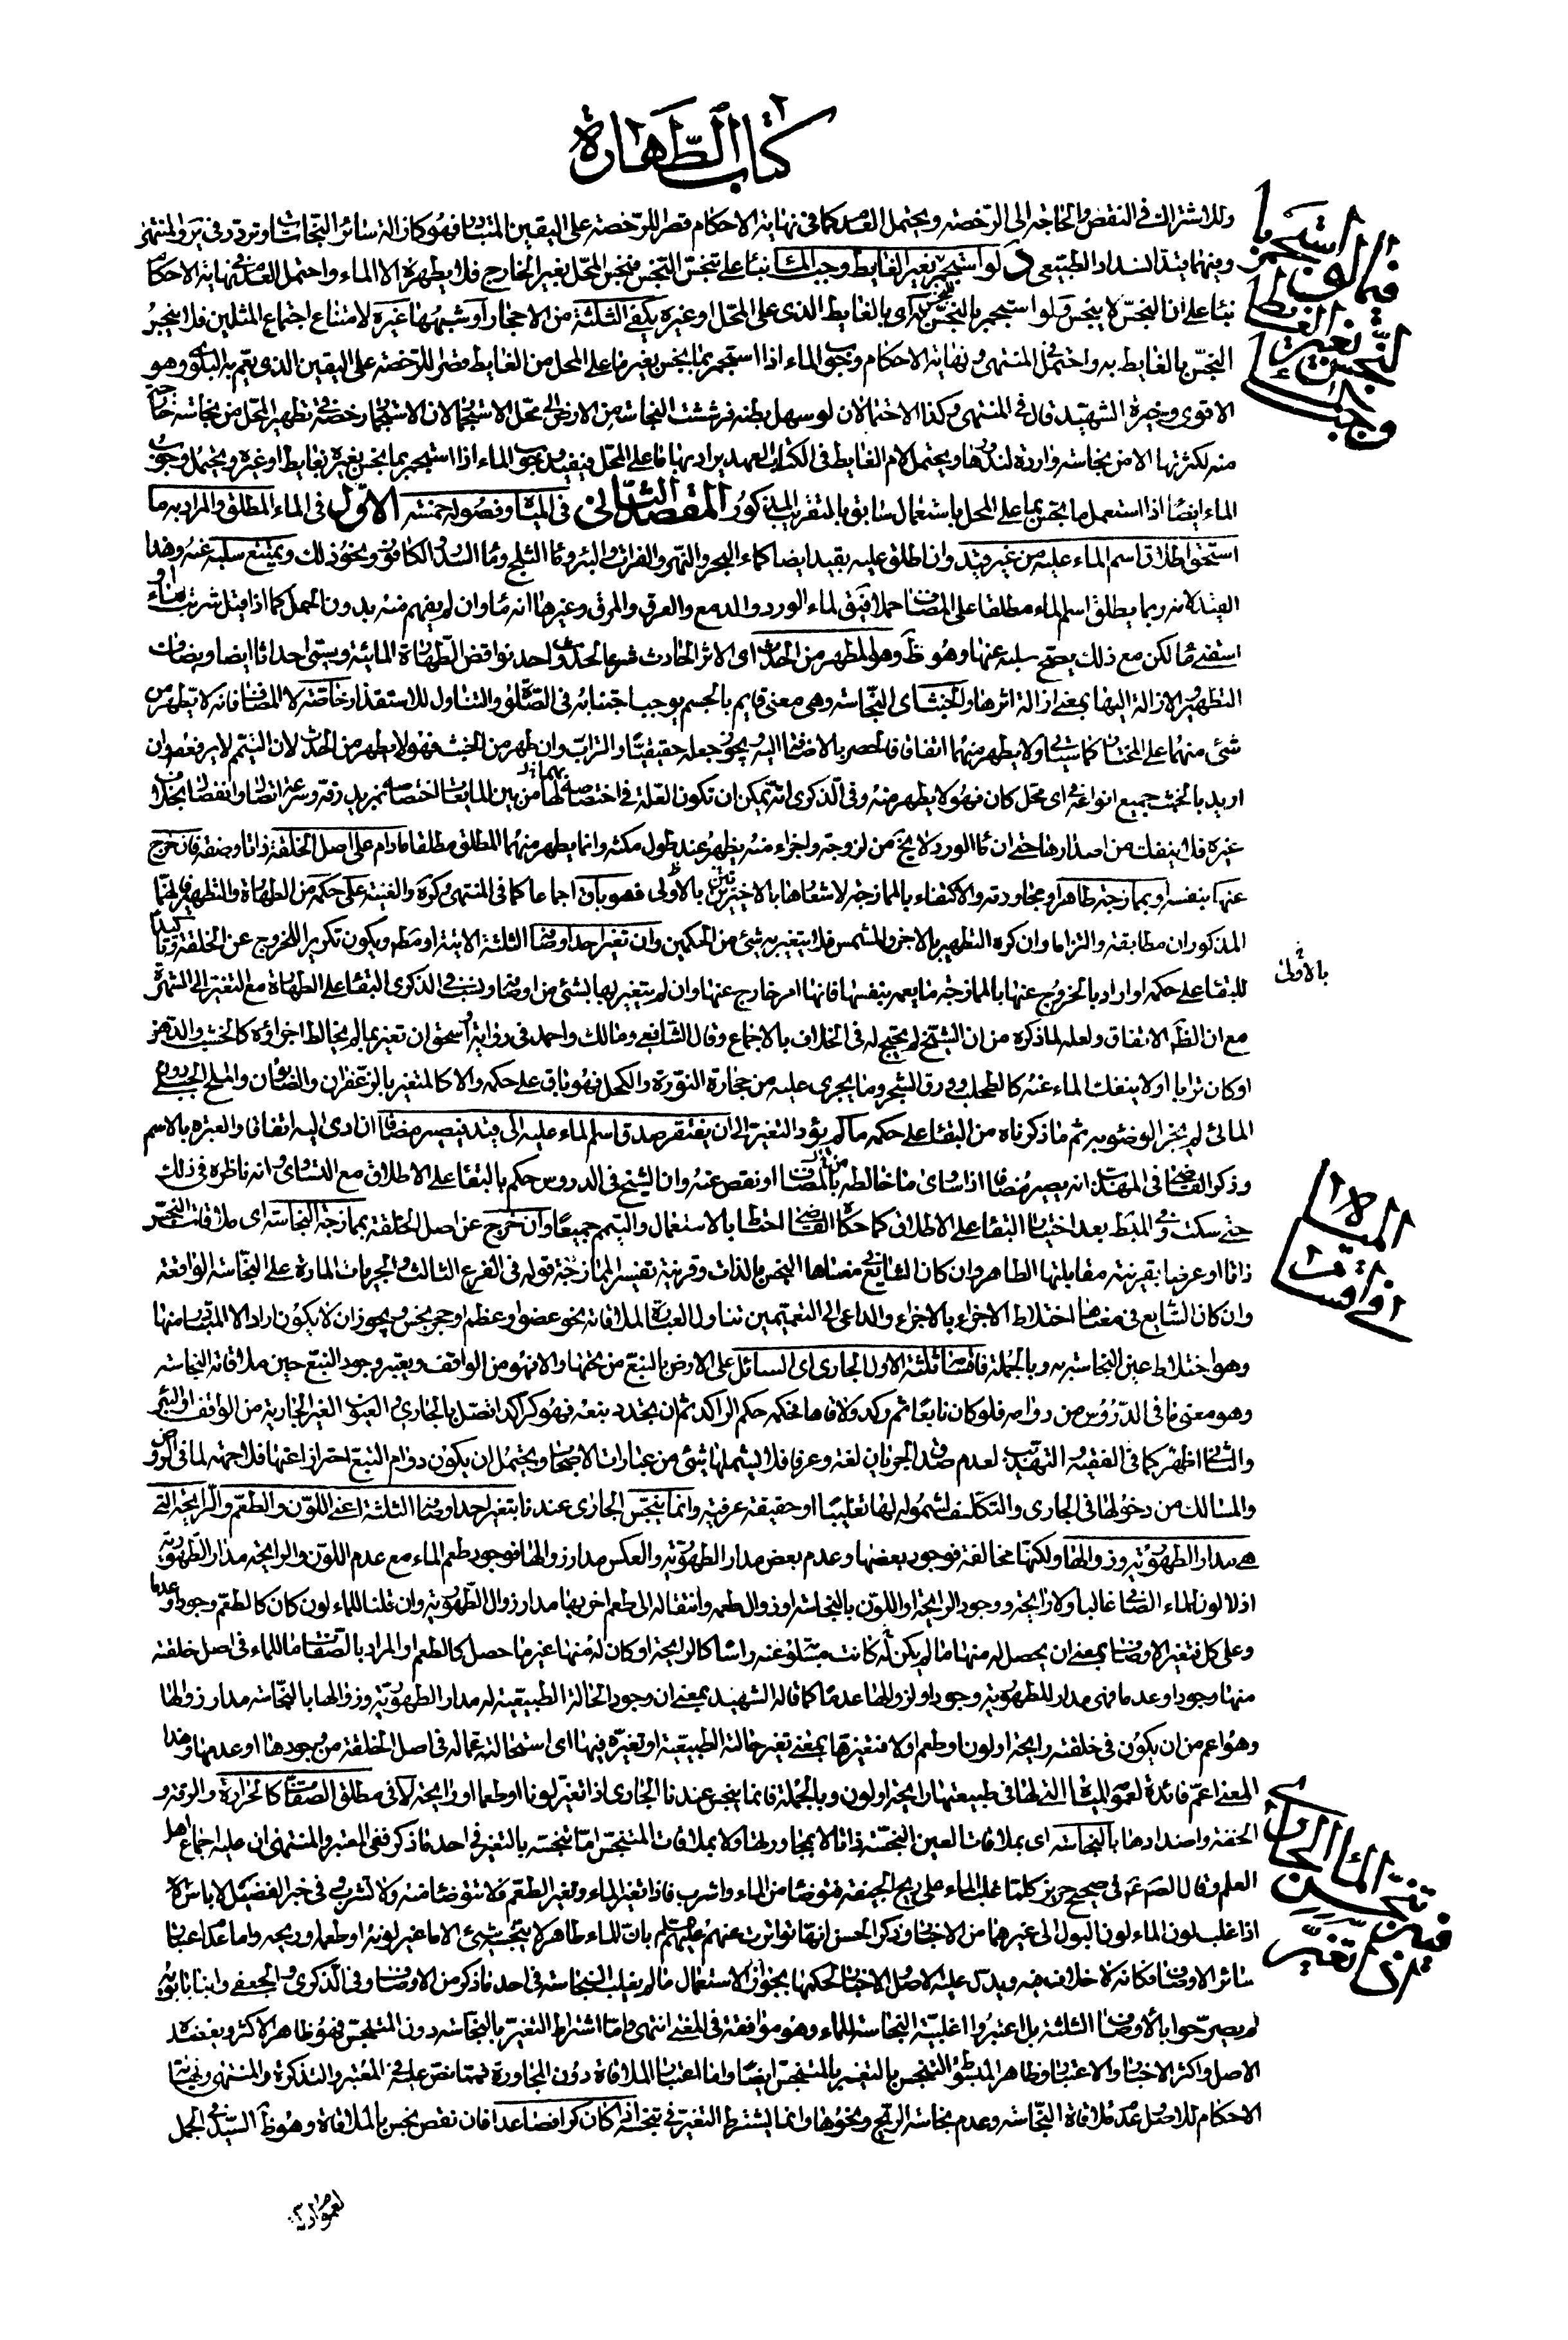 كتاب الطهارة
وللاشتراك في النقض والحاجة الى الرخصة ويحتمل العدم كما في نهاية الاحكام قصرا للرخصة على اليقين المتبادر فهو كازالة سائر النجاسات وتردد في ير والمنتهى
ومنهما مبتدا انسداد الطبيعي د لو استجمر بغير الغايط وجب الماء بناء على تنجس النجس فينجس المحل بغير الخارج فلا يطهره الا الماء واحتمل العدم في نهاية الاحكام
بناء على ان النجس لا ينجس ولو استجمر بالنجس به اى بالغايط الذى على المحل او غيره يكفي الثلثة من الاحجار او شبهها غيره لامتناع اجتماع المثلين فلا ينجس
النجس بالغايط به واحتمل في المنتهى ونهاية الاحكام وجوب الماء اذا استجمر بما نجس بغير ما على المحل من الغايط قصرا للرخصة على اليقين الذي يعم به البلوى وهو
الاقوى وخيرة الشهيد قال في المنتهى وكذا الاحتمالان لو سهل بطنه فرششت النجاسة من الارض الى محل الاستنجاء لان الاستجمار رخصة في تطهير المحل من نجاسة خارجة
منه لكثرتها الا من نجاسة واردة لندورها ويحتمل لام الغايط في الكتاب العهد يراد بها ما على المحل فيفيد وجوب الماء اذا استجمر بما نجس بغيره بغايط او غيره ويحتمل وجوب
الماء ايضا اذا استعمل ما نجس بما على المحل باستعمال سابق بالتقريب المذكور المقصد الثاني في المياه وفصوله خمسة الاول في الماء المطلق والمراد به ما
استحق اطلاق اسم الماء عليه من غير قيد وان اطلق عليه بقيد ايضا كماء البحر والنهر والفرات والبئر وماء الثلج وماء السدر والكافور ونحو ذلك ويمتنع سلبه عنه وهذا
القيد لانه ربما يطلق اسم الماء مطلقا على المضاف حملا فيق لماء الورد والدمع والعرق والمرق وغيرها انه ماء وان لم يفهم منه بدون الحمل كما اذا قيل شربت ماء او
اسقني ماء لكن مع ذلك يصح سلبه عنها وهو ظ وهو المطهر من الحدث اى الاثر الحادث شرعا لحدوث احد نواقض الطهارة المائية ويسمى احداثا ايضا ويضاف
التطهير والازالة اليها بمعنى ازالة اثرها والخبث اى النجاسة وهى معنى قايم بالجسم يوجب اجتنابه في الصلوة والتناول للاستقذار خاصة لا المضاف فانه لا يطهر من
شئ منهما على المختار كما سيأتي ولا يطهر منهما اتفاقا فالحصر بالاضافة اليه ويجوز جعله حقيقيا والتراب وان طهر من الخبث فهو لا يطهر من الحدث لان التيمم لا يرفعه وان
اريد بالخبث جميع انواعه في اى محل كان فهو لا يطهر منه وفي الذكرى انه يمكن ان تكون العلة في اختصاصه بها من بين المايعات اختصاصه بمزيد رقة وسرعة اتصال وانفصال بخلاف
غيره فلا ينفك من اصدارها حتى ان ماء الورد لا يخ من لزوجة واجزاء منه يظهر عند طول مكثه وانما يطهر منهما المطلق مطلقا مادام على اصل الخلقة ذاتا وصفة فان خرج
عنها بنفسه او بممازجة طاهر او مجاورته والاكتفاء بالممازجة لاشعارها بالاخيرين بالاولى فهو باق اجماعا كما في المنتهى وكره والغنية على حكمه من الطهارة والتطهير فانهما
المذكوران مطابقة والتزاما وان كره التطهير بالاجن والمشمس فلا يتغير به شئ من الحكمين وان تغير احد اوصافه الثلثة الاتية او مطم ويكون تكريرا للخروج عن الخلقة تاكيدا
للبقاء على حكمه او اراد بالخروج عنها بالممازجة ما يعمه بنفسها فانها امر خارج عنها وان لم يتغير لها بشئ من اوصافه ونسب في الذكرى البقاء على الطهارة مع التغير الى الشهرة
مع ان الظ الاتفاق ولعله لما ذكره من ان الشيخ لم يحتج له في الخلاف بالاجماع وقال الشافعي ومالك واحمد في رواية واسحق ان تغير بما لم يخالط اجزاؤه كالخشب والدهن
او كان ترابا او لا ينفك الماء عنه كالطحلب وورق الشجر وما يجرى عليه من حجارة النورة والكحل فهو باق على حكمه والا كالمتغير بالزعفران والصابون والملح الجبلي دون
المائي لم يجز الوضوء به ثم ما ذكرناه من البقاء على حكمه ما لم يؤد التغير الى ان يفتقر صدق اسم الماء عليه الى قيد فيصير مضافا ان ادى اليه اتفاقا والعبرة بالاسم
وذكر القاضي في المهذب انه يصير مضافا اذا ساوى ما خالطه من المضاف او نقص عنه وان الشيخ في الدروس حكم بالبقاء على الاطلاق مع التساوى وانه ناظره في ذلك
حتى سكت وفي المبسط بعد اختيار البقاء على الاطلاق كما حكاه القاضي احتاط بالاستعمال والتيمم جميعا وان خرج عن اصل الخلقة بممازجة النجاسة اى ملاقات النجس
ذاتا او عرضيا بقرينة مقابلتها الطاهر وان كان الشايع في معناها النجس بالذات وقرينة تفسير الممازجة قوله في الفرع الثالث والجريات المارة على النجاسة الواقفة
وان كان الشايع في معناها اختلاط الاجزاء بالاجزاء والداعى الى التعميمين تناول العبارة الملاقاة نحو عضو وعظم وحجر نجس ويجوز ان لا يكون اراد الا المتبادر منها
وهو اختلاط عين النجاسة به وبالجملة فاقسامه ثلثة الاول الجارى اى السائل على الارض بالنبع من تحتها والا فهو من الواقف ويعتبر وجود النبع حين ملاقاة النجاسة
وهو معنى ما في الدروس من دوامه فلو كان نابعا ثم ركد ولاقاها فحكمه حكم الراكد ثم ان تجدد نبعه فهو كراكد اتصل بالجاري والعيون الغير الجارية من الواقف او البئر
والثاني اظهر كما في المقنعة والتهذيب لعدم صدق الجريان لغة وعرفا فلا يشملها شئ من عبارات الاصحاب ويحتمل ان يكون دوام النبع احترازا عنها فلا جهة لما في الروض
والمسالك من دخولها في الجارى والتكلف لشموله لها تغليبا او حقيقة عرفية وانما ينجس الجارى عندنا بتغير احد اوصافه الثلثة اعني اللون والطعم والرايحة التي
هى مدار الطهورية وزوالها ولكنها مخالفة فوجود بعضها وعدم بعض مدار الطهورية والعكس مدار زوالها فوجود طعم الماء مع عدم اللون والرايحة مدار الطهورية
اذ لا لون للماء الصافي غالبا ولا رايحة ووجود الرايحة او اللون بالنجاسة او زوال طعمه وانتقاله الى طعم اخر بها مدار زوال الطهورية وان قلنا للماء لون كان كالطعم وجودا وعدما
وعلى كل فتغير الاوصاف بمعنى ان يحصل له منها ما لم يكن له كانت مسلوبة عنه راسا كالرايحة او كان له منها غير ما حصل كالطعم او المراد بالصفات ما للماء في اصل خلقته
منها وجودا وعدما فهي مدار للطهورية وجودا ولزوالها عدما كما قاله الشهيد بمعنى ان وجود الحالة الطبيعية له مدار الطهورية وزوالها بالنجاسة مدار زوالها
وهو اعم من ان يكون في خلقته رايحة او لون او طعم او لا فتغيرها بمعنى تغير حالته الطبيعية او تغيره فيها اى استحالته عما له في اصل الخلقة من وجودها او عدمها وهذا
المعنى اعم فائدة لعمومه المياه التي لها في طبيعتها رايحة او لون وبالجملة فانما ينجس عندنا الجارى اذا تغير لونا او طعما او رايحة لا في مطلق الصفات كالحرارة والرقة و
الخفة واضدادها بالنجاسة اى بملاقات العين النجسة ذاتا لا بمجاورتها ولا بملاقات المتنجس اما تنجسه بالتغير في احد ما ذكر ففي المعتبر والمنتهى ان عليه اجماع اهل
العلم وقال الصم ع م في صحيح حريز كلما غلب الماء على ريح الجيفة فتوضا من الماء واشرب فاذا تغير الماء وتغير الطعم فلا تتوضا منه ولا تشرب وفي خبر الفضيل لا باس به
اذا غلب لون الماء لون البول الى غيرهما من الاخبار وذكر الحسن انها تواترت عنهم عليهم السلم بان الماء طاهر لا ينجسه شئ الا ما غير لونه او طعمه او ريحه واما عدم اعتبار
سائر الاوصاف فكانه لا خلاف فيه ويدل عليه الاصل والاخبار الحاكمة بجواز الاستعمال ما لم يغلب النجاسة في احد ما ذكر من الاوصاف وفي الذكرى والجعفي وابنا بابويه
لم يصرحوا بالاوصاف الثلثة بل اعتبروا اغلبية النجاسة للماء وهو موافقة في المعنى انتهى واما اشتراط التغير بالنجاسة دون المتنجس فهو ظاهر الاكثر ويعضده
الاصل واكثر الاخبار والاعتبار وظاهر المبسوط التنجس بالتغير بالمتنجس ايضا واما اعتبار الملاقاة دون المجاورة فمما نص عليه في المعتبر والتذكرة والمنتهى ونهاية
الاحكام للاصل وعدم ملاقاة النجاسة وعدم نجاسة الريح ونحوها وانما يشترط التغير في تنجسه ان كان كرا فصاعدا فان نقص نجس بالملاقاة وهو ظ السيد في الجمل
بالاولى
المياه
اذا تغير